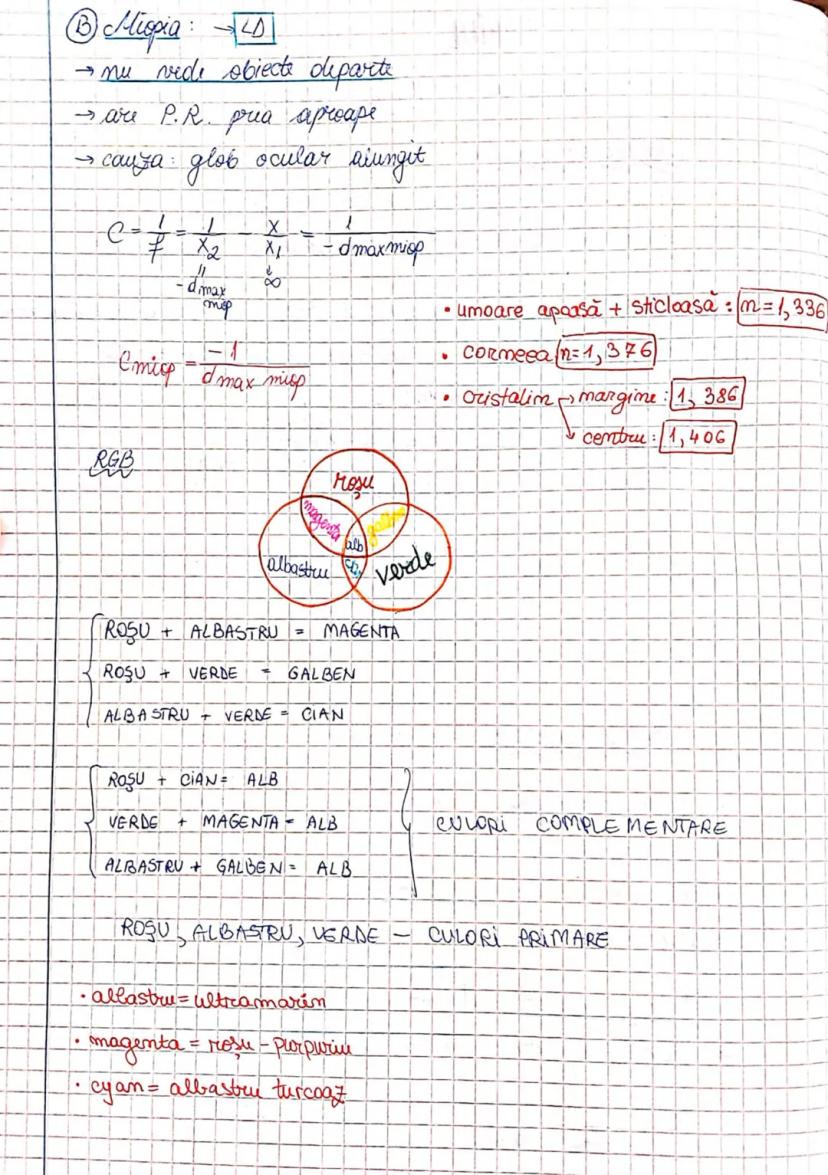 Ⓑ Miopia: → LD
→ nu vede obiecte departe
→ are P.R. prea aproape
→ cauza: glob ocular alungit
C = 1/f = 1/x₂ - x/x₁ = 1/-dmax miop
-dmax miop
∞
Cmiop = -1/dmax miop
• umoare apoasă + sticloasă: n=1,336
• corneea n=1,376
• cristalin → margine: 1,386
↘ centru: 1,406
RGB
roșu
magenta galben
alb
albastru verde
ROȘU + ALBASTRU = MAGENTA
ROȘU + VERDE = GALBEN
ALBASTRU + VERDE = CIAN
ROȘU + CIAN = ALB
VERDE + MAGENTA = ALB
CULORI COMPLEMENTARE
ALBASTRU + GALBEN = ALB
ROȘU, ALBASTRU, VERDE – CULORI PRIMARE
• albastru = ultramarin
• magenta = roșu - purpuriu
• cyan = albastru turcoaz